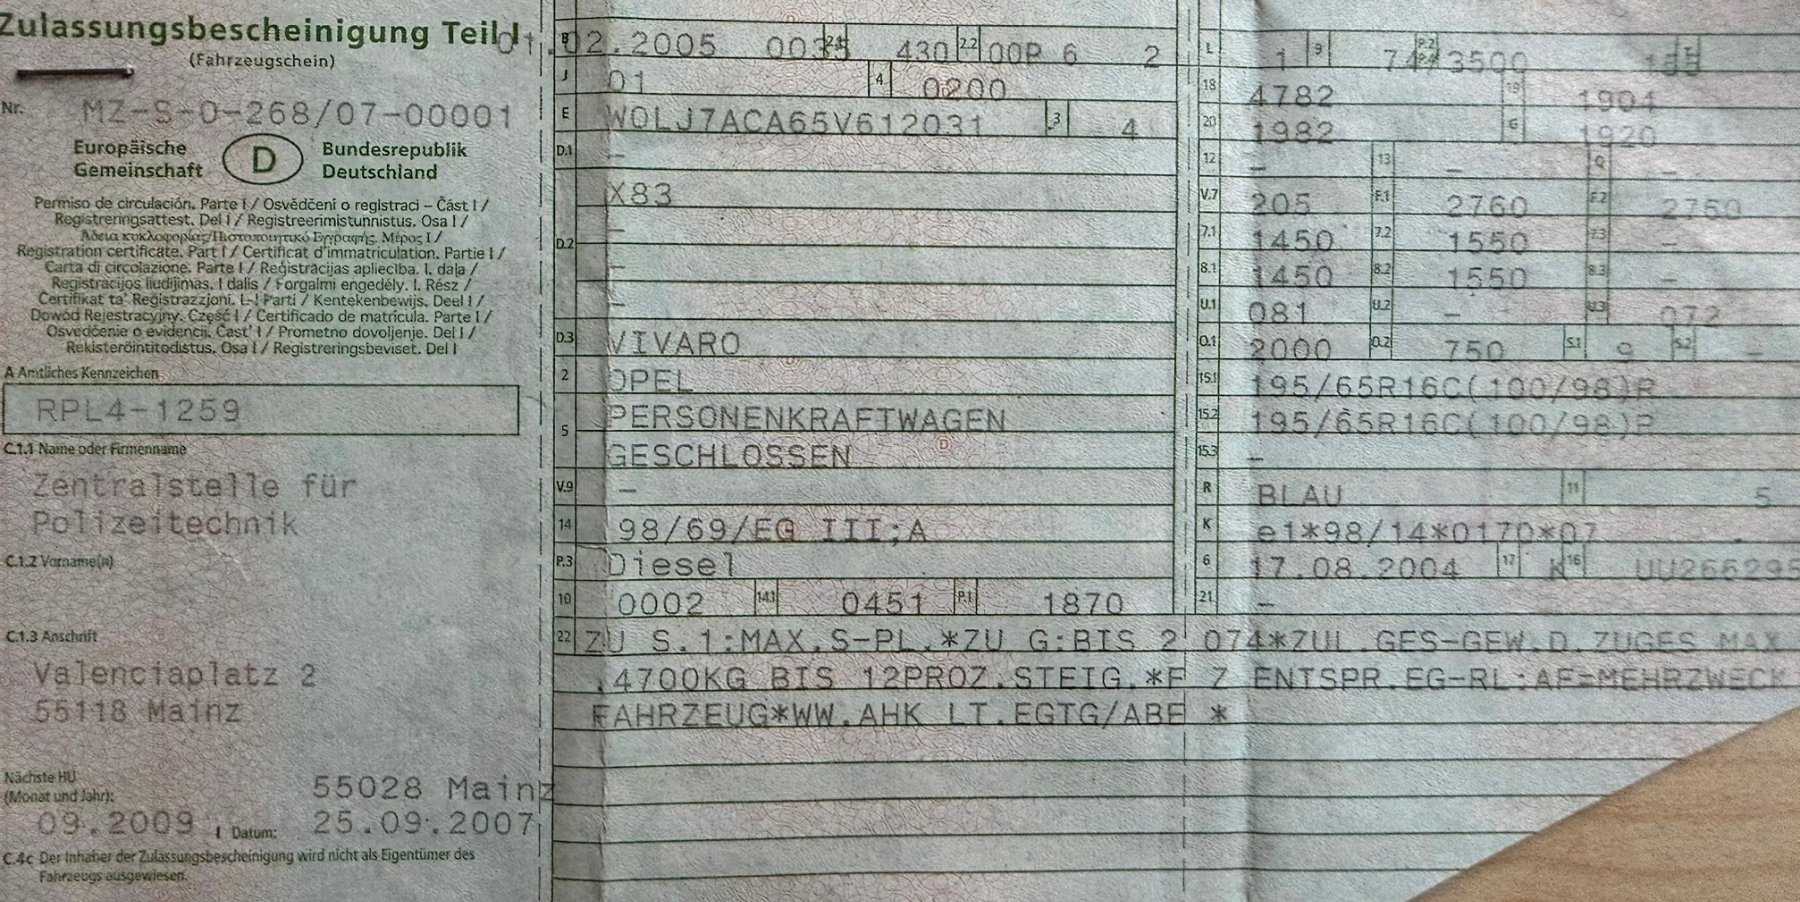 Zulassungsbescheinigung Teil I
(Fahrzeugschein)
Nr. MZ-S-0-268/07-00001
Europäische Gemeinschaft D Bundesrepublik Deutschland
Permiso de circulación. Parte I / Osvědčení o registraci – Část I /
Registreringsattest. Del I / Registreerimistunnistus. Osa I /
Άδεια κυκλοφορίας/Πιστοποιητικό Εγγραφής. Μέρος I /
Registration certificate. Part I / Certificat d'immatriculation. Partie I /
Carta di circolazione. Parte I / Reģistrācijas apliecība. I. daļa /
Registracijos liudijimas. I dalis / Forgalmi engedély. I. Rész /
Ċertifikat ta' Reġistrazzjoni. L-I Parti / Kentekenbewijs. Deel I /
Dowód Rejestracyjny. Część I / Certificado de matrícula. Parte I /
Osvedčenie o evidencii. Časť I / Prometno dovoljenje. Del I /
Rekisteröintitodistus. Osa I / Registreringsbeviset. Del I
A Amtliches Kennzeichen
RPL4-1259
C.1.1 Name oder Firmenname
Zentralstelle für
Polizeitechnik
C.1.2 Vorname(n)
C.1.3 Anschrift
Valenciaplatz 2
55118 Mainz
Nächste HU
(Monat und Jahr): 55028 Mainz
09.2009 I Datum: 25.09.2007
C.4c Der Inhaber der Zulassungsbescheinigung wird nicht als Eigentümer des
Fahrzeugs ausgewiesen.
B 01.02.2005 0035 430 2.2 00P 6 2
J 01 4 0200
E W0LJ7ACA65V612031 3 4
D.1 –
X83
–
D.2 –
–
D.3 VIVARO
2 OPEL
PERSONENKRAFTWAGEN
5 GESCHLOSSEN
V.9 –
14 98/69/EG III;A
P.3 Diesel
10 0002 14.1 0451 P.1 1870
L 1 9 74/3500
18 4782 19 1904
20 1982 G 1920
12 – 13 – Q –
V.7 205 F.1 2760 F.2 2750
7.1 1450 7.2 1550 7.3 –
8.1 1450 8.2 1550 8.3 –
U.1 081 U.2 – U.3 072
O.1 2000 O.2 750 S.1 9 S.2 –
15.1 195/65R16C(100/98)R
15.2 195/65R16C(100/98)R
15.3 –
R BLAU 11 5
K e1*98/14*0170*07
6 17.08.2004 17 K 16 UU266295
21 –
22 ZU S.1:MAX.S-PL.*ZU G:BIS 2 074*ZUL.GES-GEW.D.ZUGES MAX
.4700KG BIS 12PROZ.STEIG.*F Z ENTSPR.EG-RL:AF=MEHRZWECK
FAHRZEUG*WW.AHK LT.EGTG/ABE *